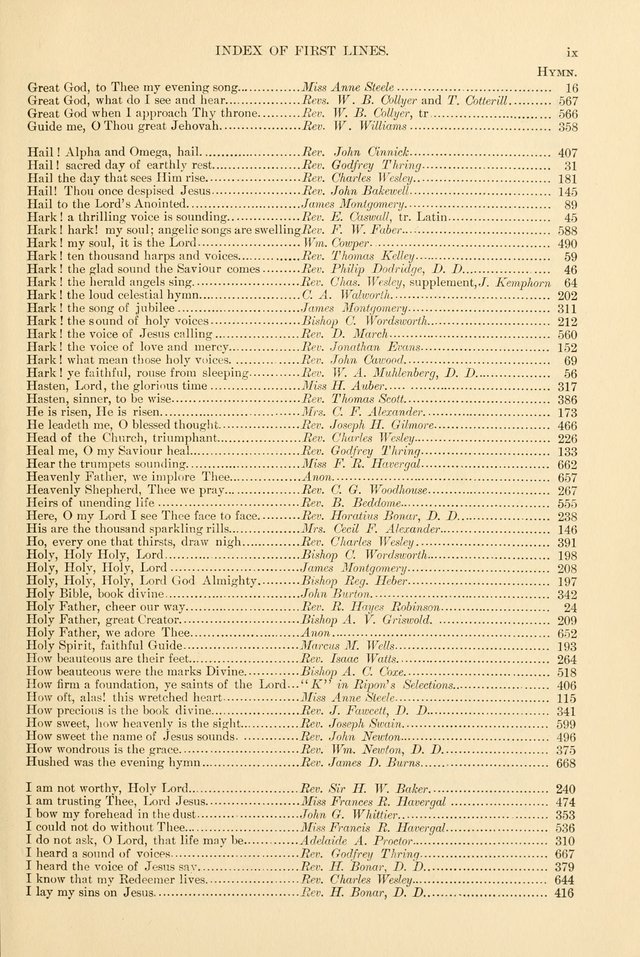 INDEX OF FIRST LINES. ix
HYMN.
Great God, to Thee my evening song..............Miss Anne Steele .................................... 16
Great God, what do I see and hear.................Revs. W. B. Collyer and T. Cotterill.......... 567
Great God when I approach Thy throne..........Rev. W. B. Collyer, tr............................. 566
Guide me, O Thou great Jehovah...................Rev. W. Williams .................................. 358
Hail! Alpha and Omega, hail........................Rev. John Cinnick.................................. 407
Hail! sacred day of earthly rest.....................Rev. Godfrey Thring............................... 31
Hail the day that sees Him rise......................Rev. Charles Wesley............................... 181
Hail! Thou once despised Jesus.....................Rev. John Bakewell................................ 145
Hail to the Lord's Anointed..........................James Montgomery................................ 89
Hark! a thrilling voice is sounding..................Rev. E. Caswall, tr. Latin........................ 45
Hark! hark! my soul; angelic songs are swelling Rev. F. W. Faber................................. 588
Hark! my soul, it is the Lord.........................Wm. Cowper........................................ 490
Hark! ten thousand harps and voices..............Rev. Thomas Kelley............................... 59
Hark! the glad sound the Saviour comes.........Rev. Philip Dodridge, D. D..................... 46
Hark! the herald angels sing.........................Rev. Chas. Wesley, supplement, J. Kemphorn 64
Hark! the loud celestial hymn.......................C. A. Walworth..................................... 202
Hark! the song of jubilee.............................James Montgomery................................ 311
Hark! the sound of holy voices.....................Bishop C. Wordsworth........................... 212
Hark! the voice of Jesus calling.....................Rev. D. March...................................... 560
Hark! the voice of love and mercy.................Rev. Jonathan Evans.............................. 152
Hark! what mean those holy voices................Rev. John Cawood................................. 69
Hark! ye faithful, rouse from sleeping.............Rev. W. A. Muhlenberg, D. D................. 56
Hasten, Lord, the glorious time .....................Miss H. Auber...................................... 317
Hasten, sinner, to be wise.............................Rev. Thomas Scott................................. 386
He is risen, He is risen.................................Mrs. C. F. Alexander............................. 173
He leadeth me, O blessed thought..................Rev. Joseph H. Gilmore.......................... 466
Head of the Church, triumphant....................Rev. Charles Wesley............................... 226
Heal me, O my Saviour heal..........................Rev. Godfrey Thring.............................. 133
Hear the trumpets sounding..........................Miss F. R. Havergal............................... 662
Heavenly Father, we implore Thee.................Anon.................................................. 657
Heavenly Shepherd, Thee we pray..................Rev. C. G. Woodhouse........................... 267
Heirs of unending life ................................Rev. B. Beddome................................... 555
Here, O my Lord I see Thee face to face.........Rev. Horatius Bonar, D. D..................... 238
His are the thousand sparkling rills................Mrs. Cecil F. Alexander......................... 146
Ho, every one that thirsts, draw nigh..............Rev. Charles Wesley............................... 391
Holy, Holy Holy, Lord.................................Bishop C. Wordsworth........................... 198
Holy, Holy, Holy, Lord ...............................James Montgomery................................ 208
Holy, Holy, Holy, Lord God Almighty............Bishop Reg. Heber................................ 197
Holy Bible, book divine...............................John Burton......................................... 342
Holy Father, cheer our way..........................Rev. R. Hayes Robinson......................... 24
Holy Father, great Creator............................Bishop A. V. Griswold. ......................... 209
Holy Father, we adore Thee..........................Anon.................................................. 652
Holy Spirit, faithful Guide............................Marcus M. Wells................................... 193
How beauteous are their feet.........................Rev. Isaac Watts................................... 264
How beauteous were the marks Divine............Bishop A. C. Coxe................................. 518
How firm a foundation, ye saints of the Lord..."K" in Ripon's Selections....................... 406
How oft, alas! this wretched heart..................Miss Anne Steele................................... 115
How precious is the book divine....................Rev. J. Fawcett, D. D............................ 341
How sweet, how heavenly is the sight.............Rev. Joseph Swain................................. 599
How sweet the name of Jesus sounds. ............Rev. John Newton................................. 496
How wondrous is the grace...........................Rev. Wm. Newton, D. D........................ 375
Hushed was the evening hymn......................Rev. James D. Burns.............................. 668
I am not worthy, Holy Lord..........................Rev. Sir H. W. Baker............................ 240
I am trusting Thee, Lord Jesus......................Miss Frances R. Havergal ...................... 474
I bow my forehead in the dust.......................John G. Whittier................................... 353
I could not do without Thee..........................Miss Francis R. Havergal....................... 536
I do not ask, O Lord, that life may be.............Adelaide A. Proctor............................... 310
I heard a sound of voices..............................Rev. Godfrey Thring.............................. 667
I heard the voice of Jesus say........................Rev. H. Bonar, D. D............................. 379
I know that my Redeemer lives.....................Rev. Charles Wesley............................... 644
I lay my sins on Jesus..................................Rev. H. Bonar, D. D............................. 416